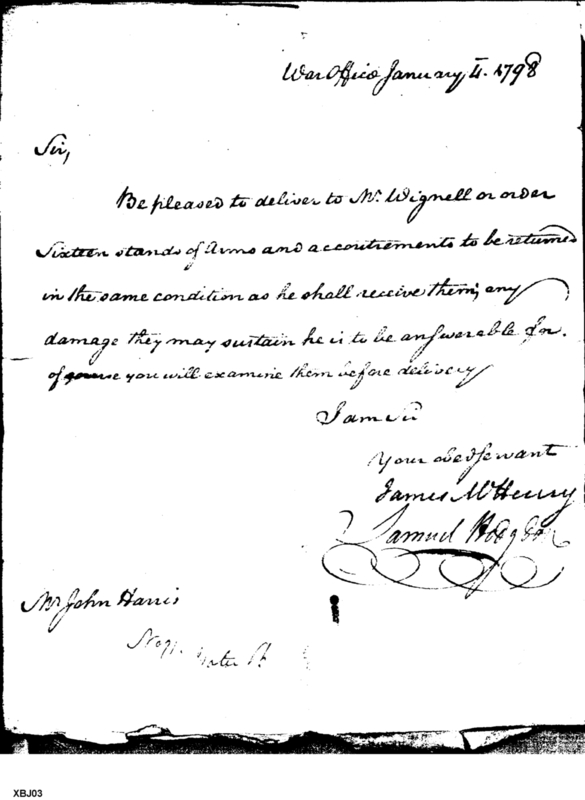 War Office January 4. 1798
Sir,
Be pleased to deliver to Mr. Wignell or order
Sixteen stands of Arms and accoutrements to be returned
in the same condition as he shall receive them; any
damage they may sustain he is to be answerable for.
of course you will examine them before delivery
I am Sir
Your Obed Servant
James McHenry
Samuel Hodgdon
Mr John Harris
No
Water St
XBJ03